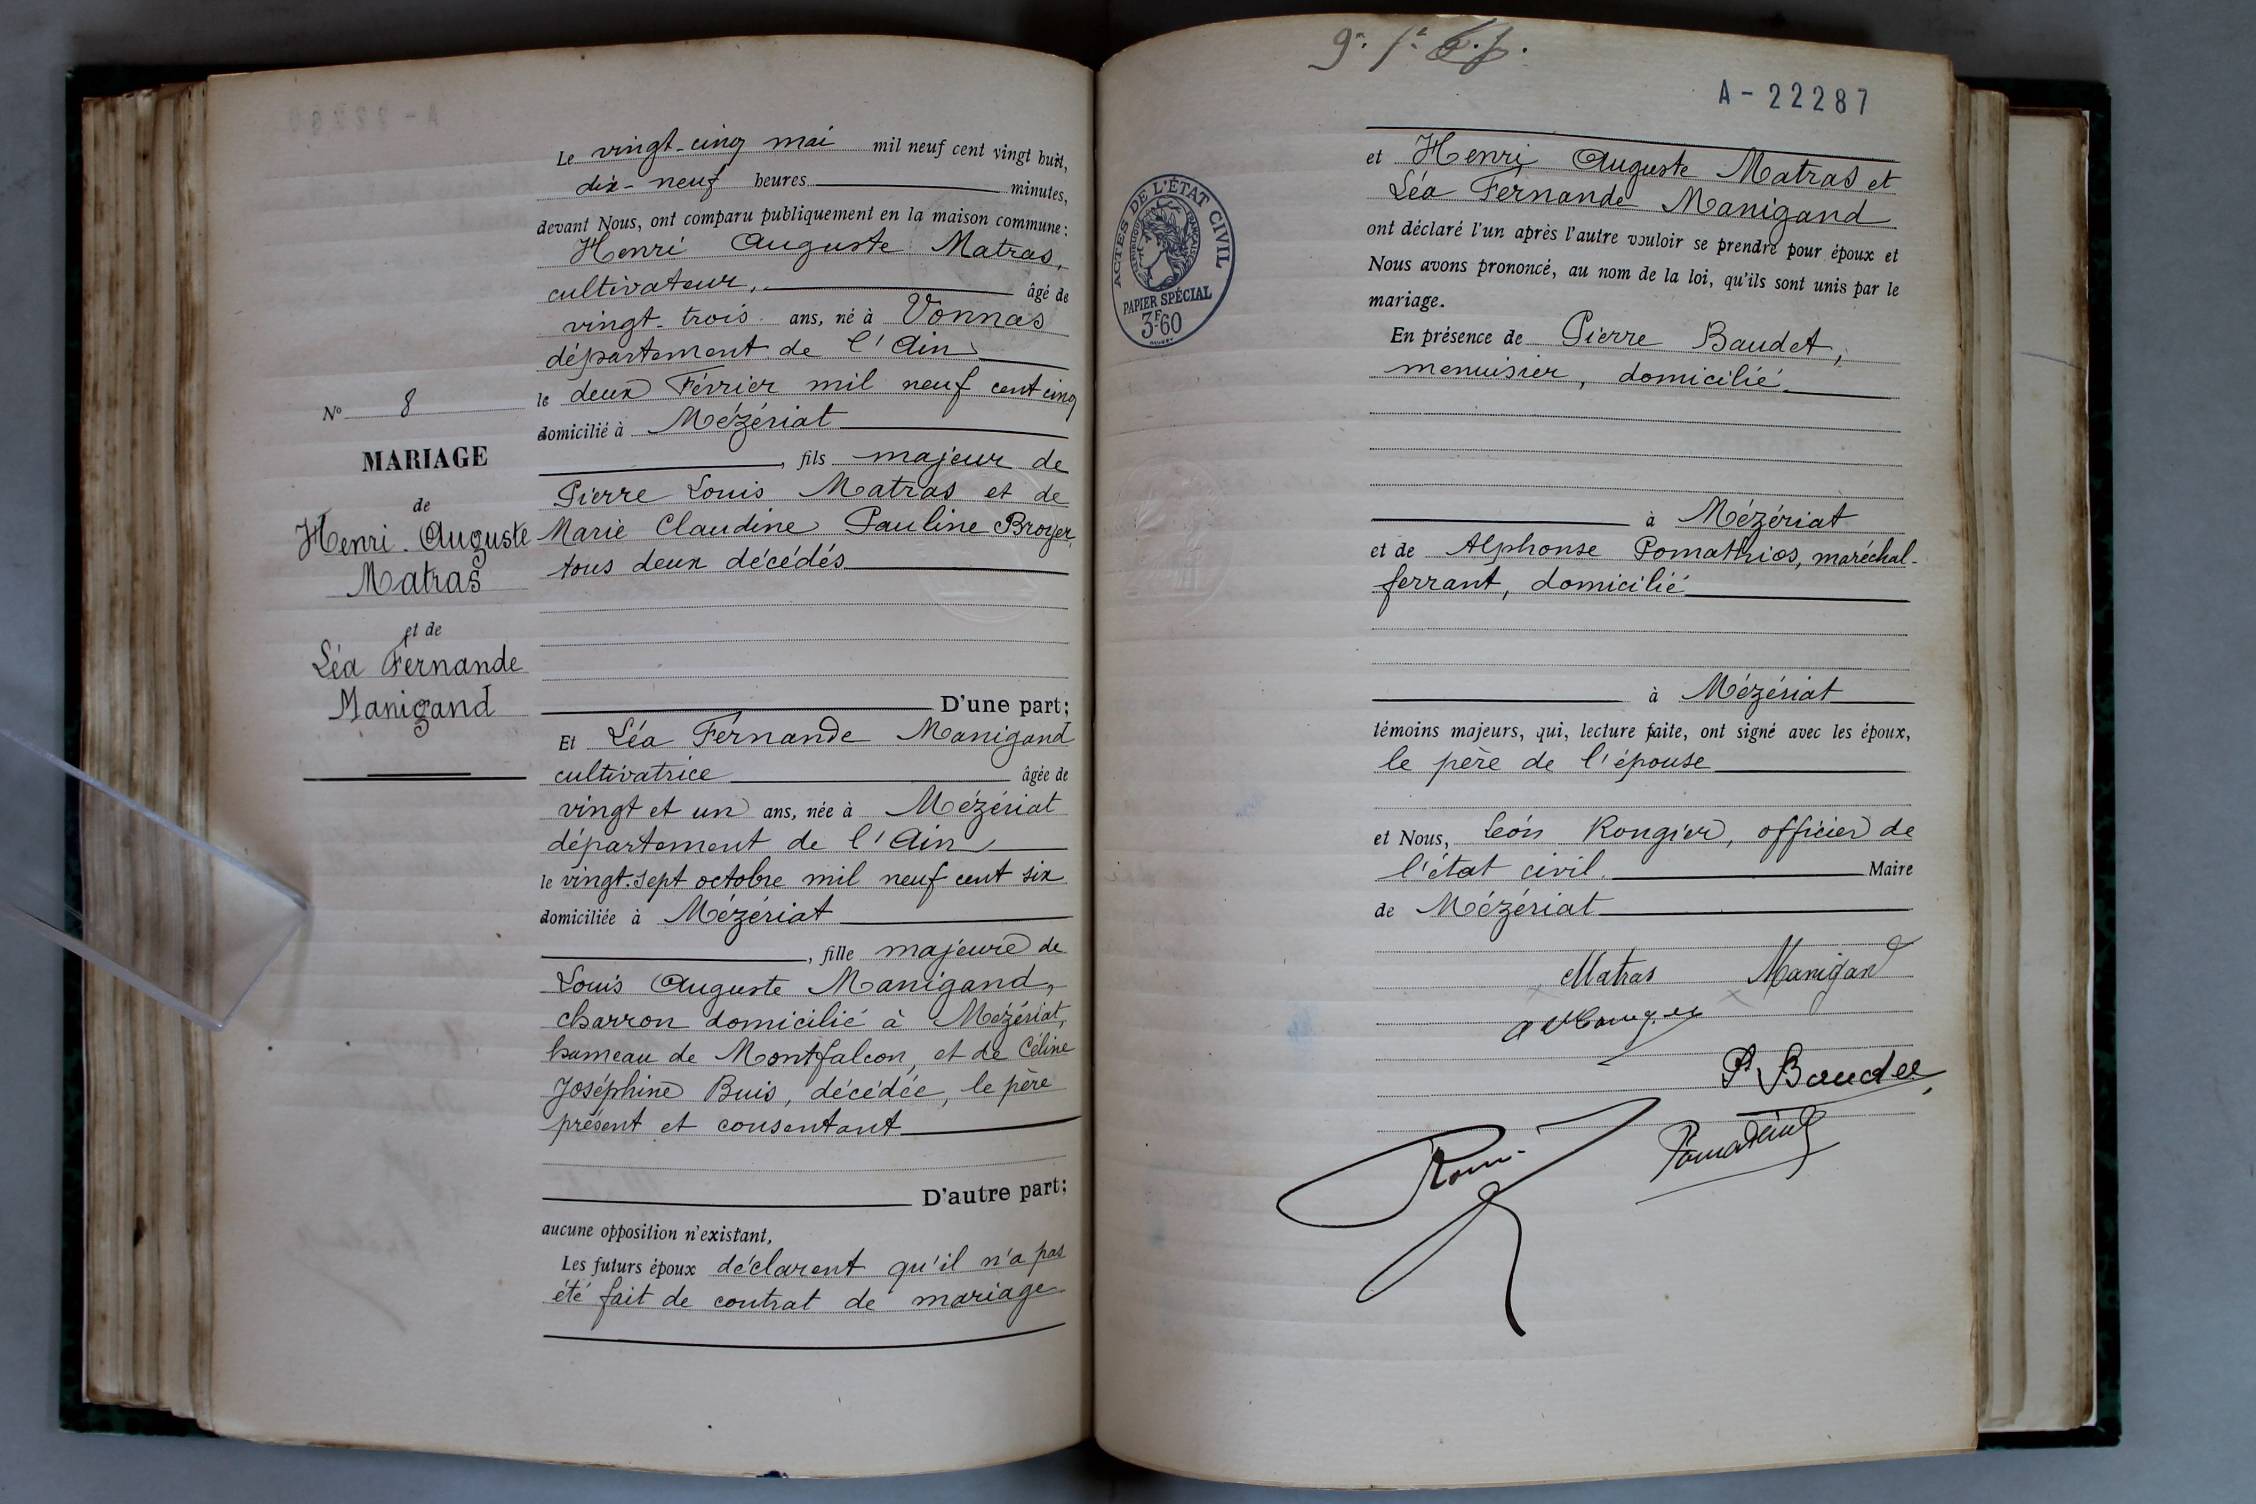 Le vingt-cinq mai mil neuf cent vingt huit,
dix-neuf heures minutes,
devant Nous, ont comparu publiquement en la maison commune:
Henri Auguste Matras,
cultivateur, âgé de
vingt-trois ans, né à Vonnas
département de l'Ain
le deux Février mil neuf cent cinq
domicilié à Mézériat
, fils majeur de
Pierre Louis Matras et de
Marie Claudine Pauline Broyer,
tous deux décédés
D'une part;
Et Léa Fernande Manigand
cultivatrice âgée de
vingt et un ans, née à Mézériat
département de l'Ain
le vingt-sept octobre mil neuf cent six
domiciliée à Mézériat
, fille majeure de
Louis Auguste Manigand,
charron domicilié à Mézériat,
hameau de Montfalcon, et de Céline
Joséphine Buis, décédée, le père
présent et consentant
D'autre part;
aucune opposition n'existant,
Les futurs époux déclarent qu'il n'a pas
été fait de contrat de mariage
N° 8
MARIAGE
de
Henri-Auguste
Matras
et de
Léa Fernande
Manigand
A-22287
ACTES DE L'ÉTAT CIVIL
RÉPUBLIQUE FRANÇAISE
PAPIER SPÉCIAL
3F60
et Henri Auguste Matras et
Léa Fernande Manigand
ont déclaré l'un après l'autre vouloir se prendre pour époux et
Nous avons prononcé, au nom de la loi, qu'ils sont unis par le
mariage.
En présence de Pierre Baudet,
menuisier, domicilié
à Mézériat
et de Alphonse Pomathios, maréchal-
ferrant, domicilié
à Mézériat
témoins majeurs, qui, lecture faite, ont signé avec les époux,
le père de l'épouse
et Nous, Léon Rongier, officier de
l'état civil. Maire
de Mézériat
Matras Manigand
P Baudet